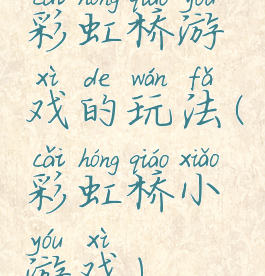 cǎi hóng qiáo yóu
彩虹桥游
xì de wán fǎ
戏的玩法(
cǎi hóng qiáo xiǎo
彩虹桥小
yóu xì
游戏)